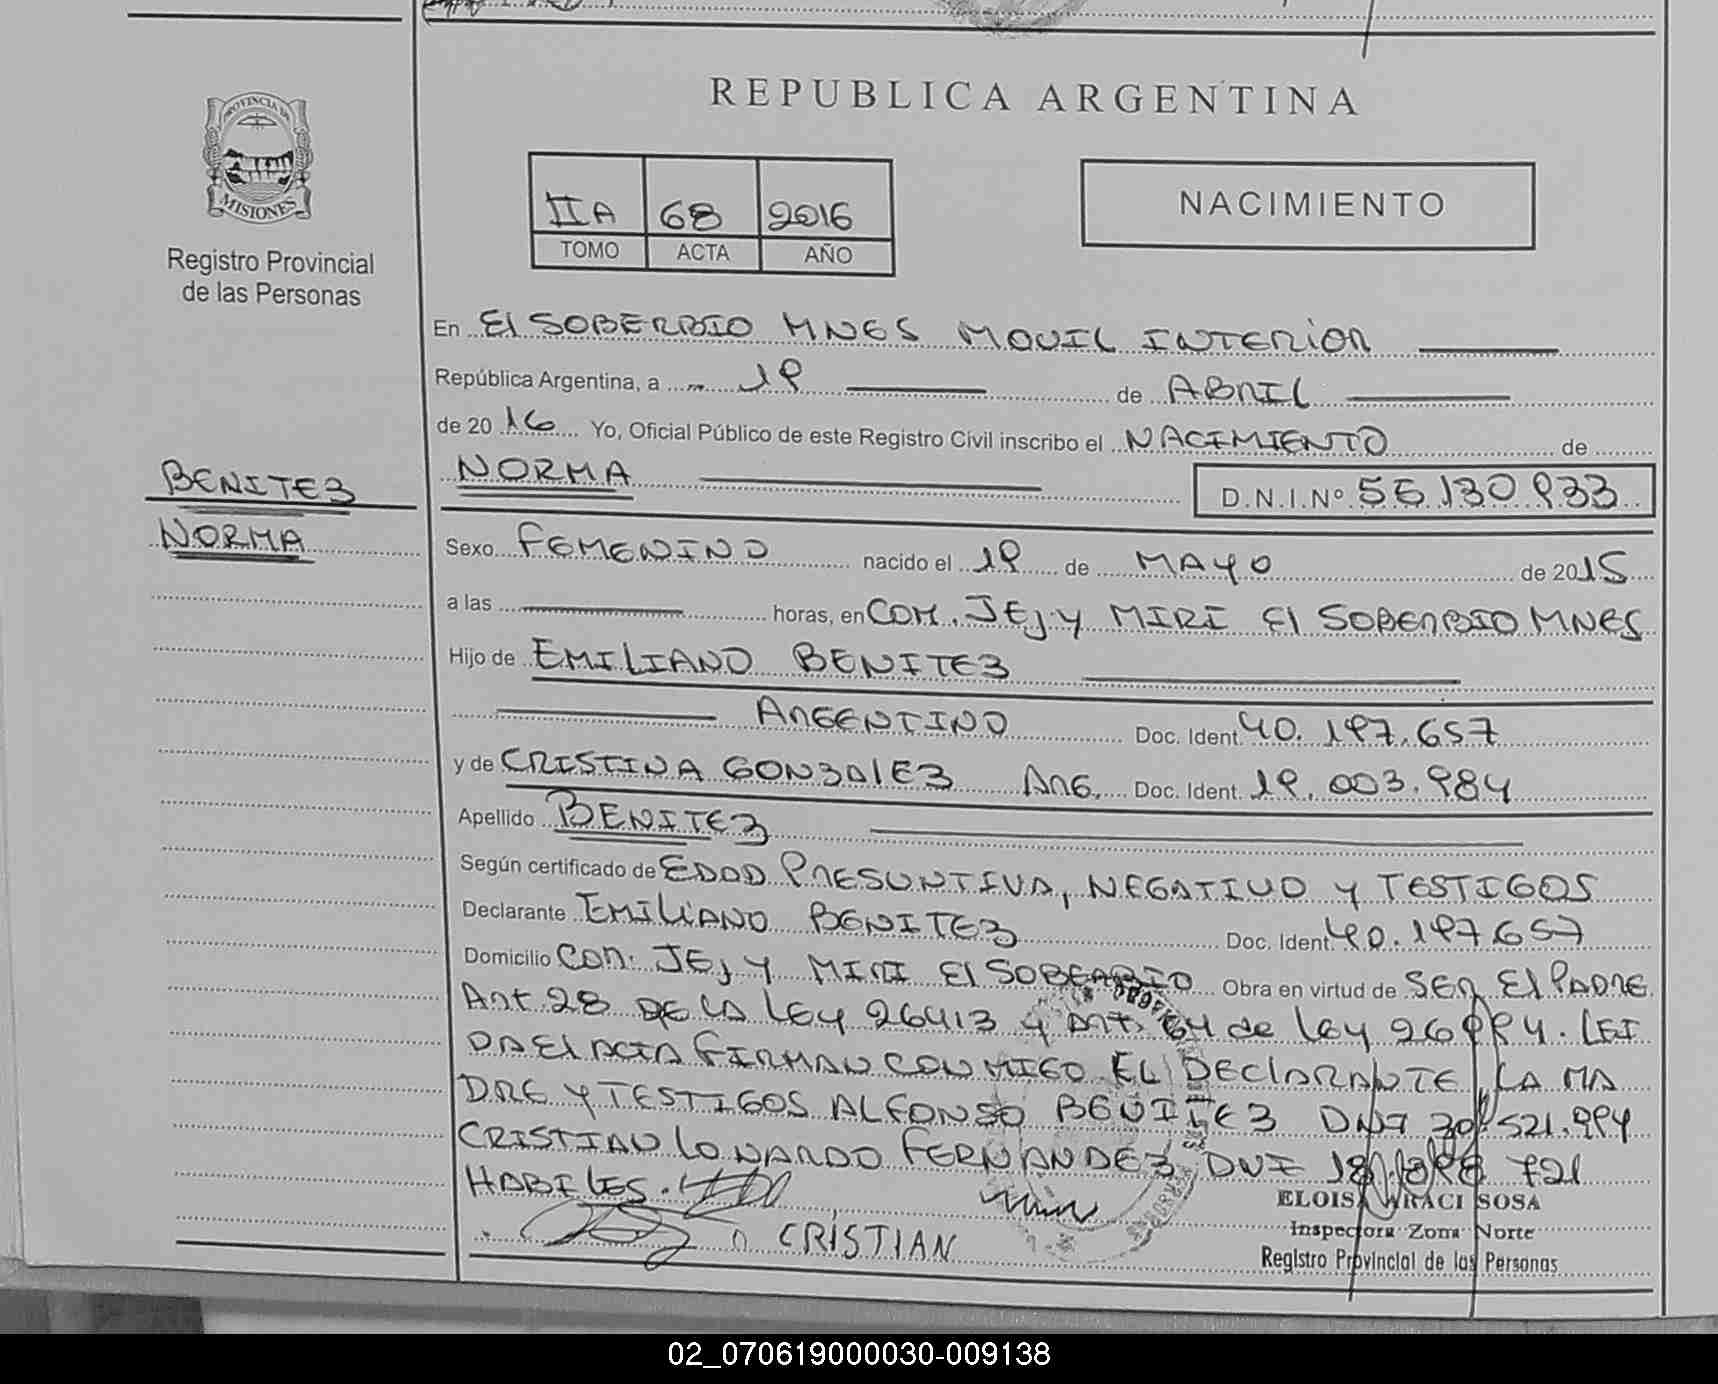 REPUBLICA ARGENTINA
PROVINCIA DE
MISIONES
Registro Provincial
de las Personas
IIA 68 2016
TOMO ACTA AÑO
NACIMIENTO
En El SOBERBIO MNES MOVIL INTERIOR
República Argentina, a 19 de ABRIL
de 2016 Yo, Oficial Público de este Registro Civil inscribo el NACIMIENTO de
BENITEZ
NORMA
NORMA D.N.I.Nº 55.130.933
Sexo FEMENINO nacido el 19 de MAYO de 2015
a las horas, en COM. JEJY MIRI El SOBERBIO MNES
Hijo de EMILIANO BENITEZ
ARGENTINO Doc. Ident. 40.197.657
y de CRISTINA GONZALEZ ARG. Doc. Ident. 19.003.984
Apellido BENITEZ
Según certificado de EDAD PRESUNTIVA, NEGATIVO y TESTIGOS
Declarante EMILIANO BENITEZ Doc. Ident. 40.197.657
Domicilio COM. JEJY MIRI El SOBERBIO Obra en virtud de SER El PADRE
Art. 28 DE LA LEY 26413 y Art. 64 de ley 26994. LEI
DA El ACTA FIRMAN CONMIGO EL DECLARANTE, LA MA
DRE y TESTIGOS ALFONSO BENITEZ DNI 30.521.994
CRISTIAN LONARDO FERNANDEZ DNI 721
HABILES.
CRISTIAN
ELOISA ARACI SOSA
Inspectora Zona Norte
Registro Provincial de las Personas
02_070619000030-009138